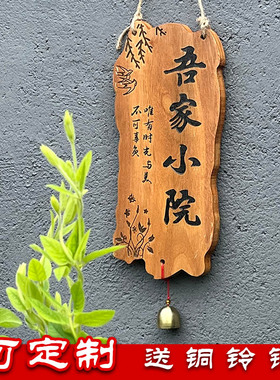 吾家小院
唯有时光与美
不可辜负
可定制 送铜铃铛